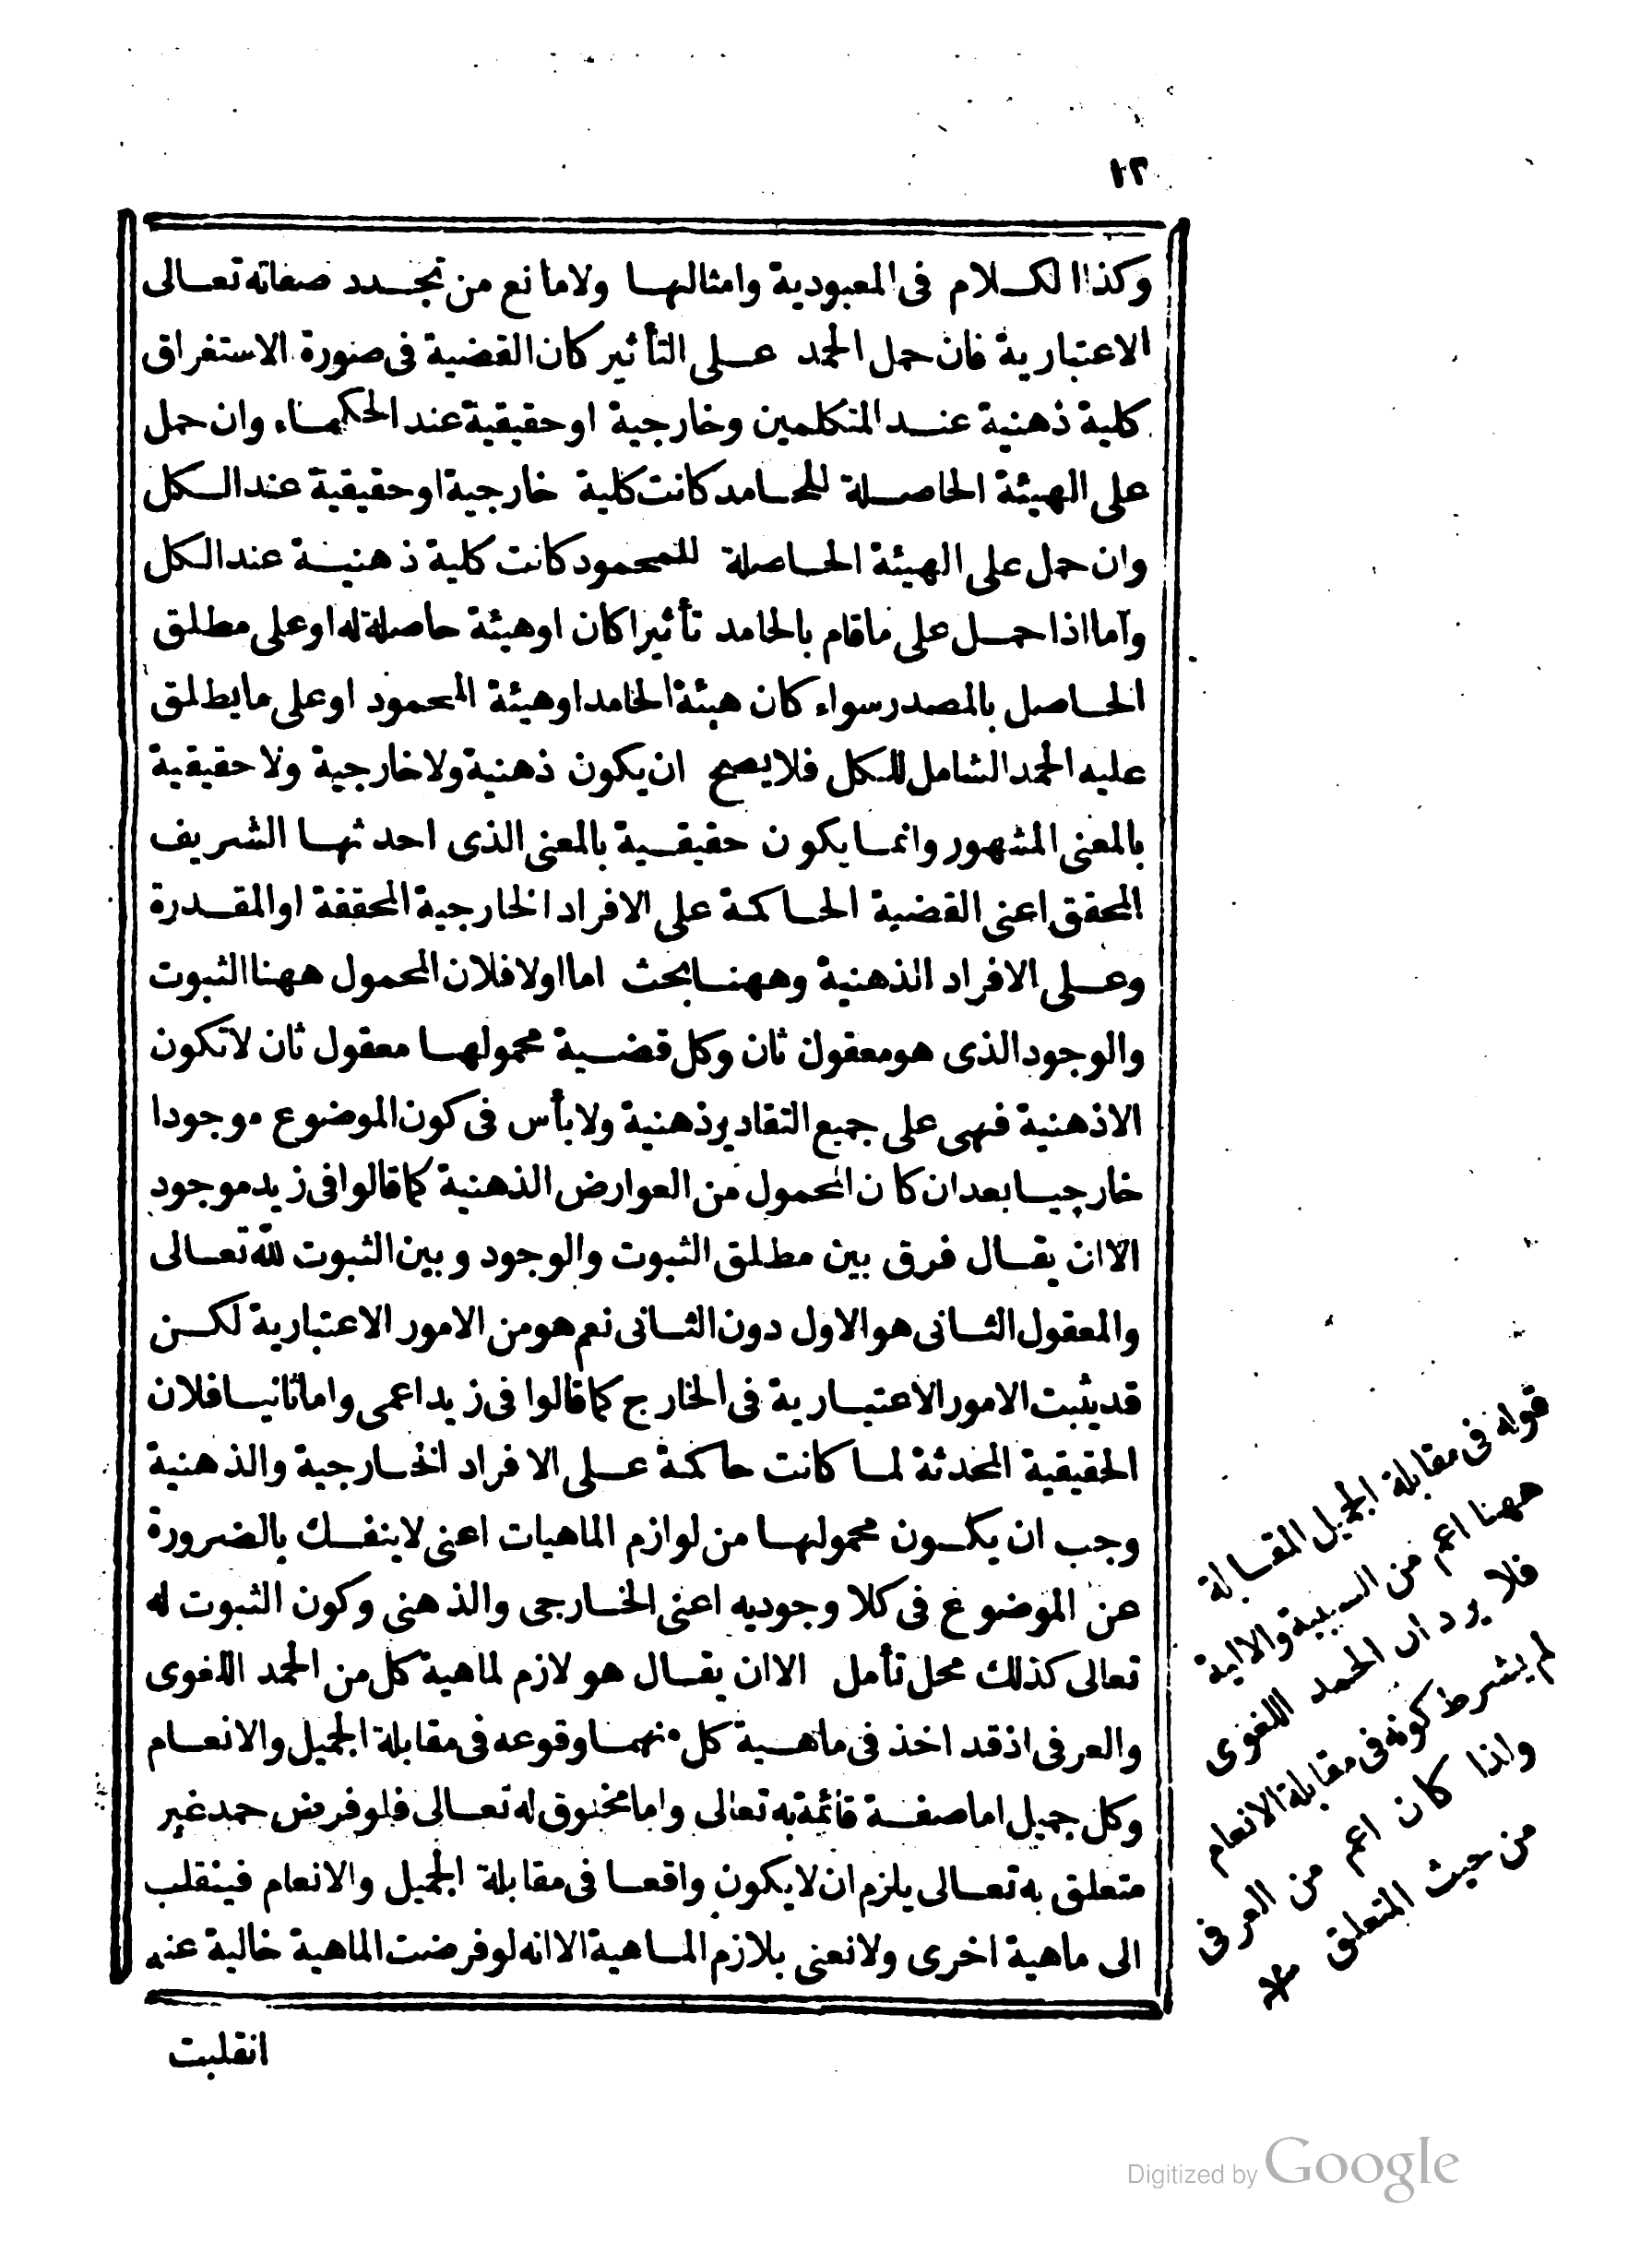 ١٢
وكذا الكلام فى المعبودية وامثالها ولامانع من تجدد صفاته تعالى
الاعتبارية فان حمل الحمد على التأثير كان القضية فى صورة الاستغراق
كلية ذهنية عند المتكلمين وخارجية او حقيقية عند الحكماء وان حمل
على الهيئة الحاصلة للحامد كانت كلية خارجية او حقيقية عند الكل
وان حمل على الهيئة الحاصلة للمحمود كانت كلية ذهنية عند الكل
وآما اذا حمل على ماقام بالحامد تأثيرا كان او هيئة حاصلة له او على مطلق
الحاصل بالمصدر سواء كان هيئة الحامد او هيئة المحمود او على مايطلق
عليه الحمد الشامل للكل فلا يصح ان يكون ذهنية ولا خارجية ولا حقيقية
بالمعنى المشهور وانما يكون حقيقية بالمعنى الذى احدثها الشريف
المحقق اعنى القضية الحاكمة على الافراد الخارجية المحققة او المقدرة
وعلى الافراد الذهنية وههنا بحث اما اولا فلان المحمول ههنا الثبوت
والوجود الذى هو معقول ثان وكل قضية محمولها معقول ثان لاتكون
الا ذهنية فهى على جميع التقادير ذهنية ولا بأس فى كون الموضوع موجودا
خارجيا بعد ان كان المحمول من العوارض الذهنية كما قالوا فى زيد موجود
الا ان يقال فرق بين مطلق الثبوت والوجود وبين الثبوت لله تعالى
والمعقول الثانى هو الاول دون الثانى نعم هو من الامور الاعتبارية لكن
قد يثبت الامور الاعتبارية فى الخارج كما قالوا فى زيد اعمى واما ثانيا فلان
الحقيقية المحدثة لما كانت حاكمة على الافراد الخارجية والذهنية
وجب ان يكون محمولها من لوازم الماهيات اعنى لاينفك بالضرورة
عن الموضوع فى كلا وجوديه اعنى الخارجى والذهنى وكون الثبوت له
تعالى كذلك محل تأمل الا ان يقال هو لازم لماهية كل من الحمد اللغوى
والعرفى اذ قد اخذ فى ماهية كل منهما وقوعه فى مقابلة الجميل والانعام
وكل جميل اما صفة قائمة به تعالى واما مخلوق له تعالى فلو فرض حمد غير
متعلق به تعالى يلزم ان لا يكون واقعا فى مقابلة الجميل والانعام فينقلب
الى ماهية اخرى ولا نعنى بلازم الماهية الا انه لو فرضت الماهية خالية عنه
انقلبت
قوله فى مقابلة الجميل المقابلة
ههنا اعم من السببية والالية
فلا يرد ان الحمد اللغوى
لم يشرط كونه فى مقابلة الانعام
واذا كان اعم من العرفى
من حيث المتعلق *
Digitized by Google